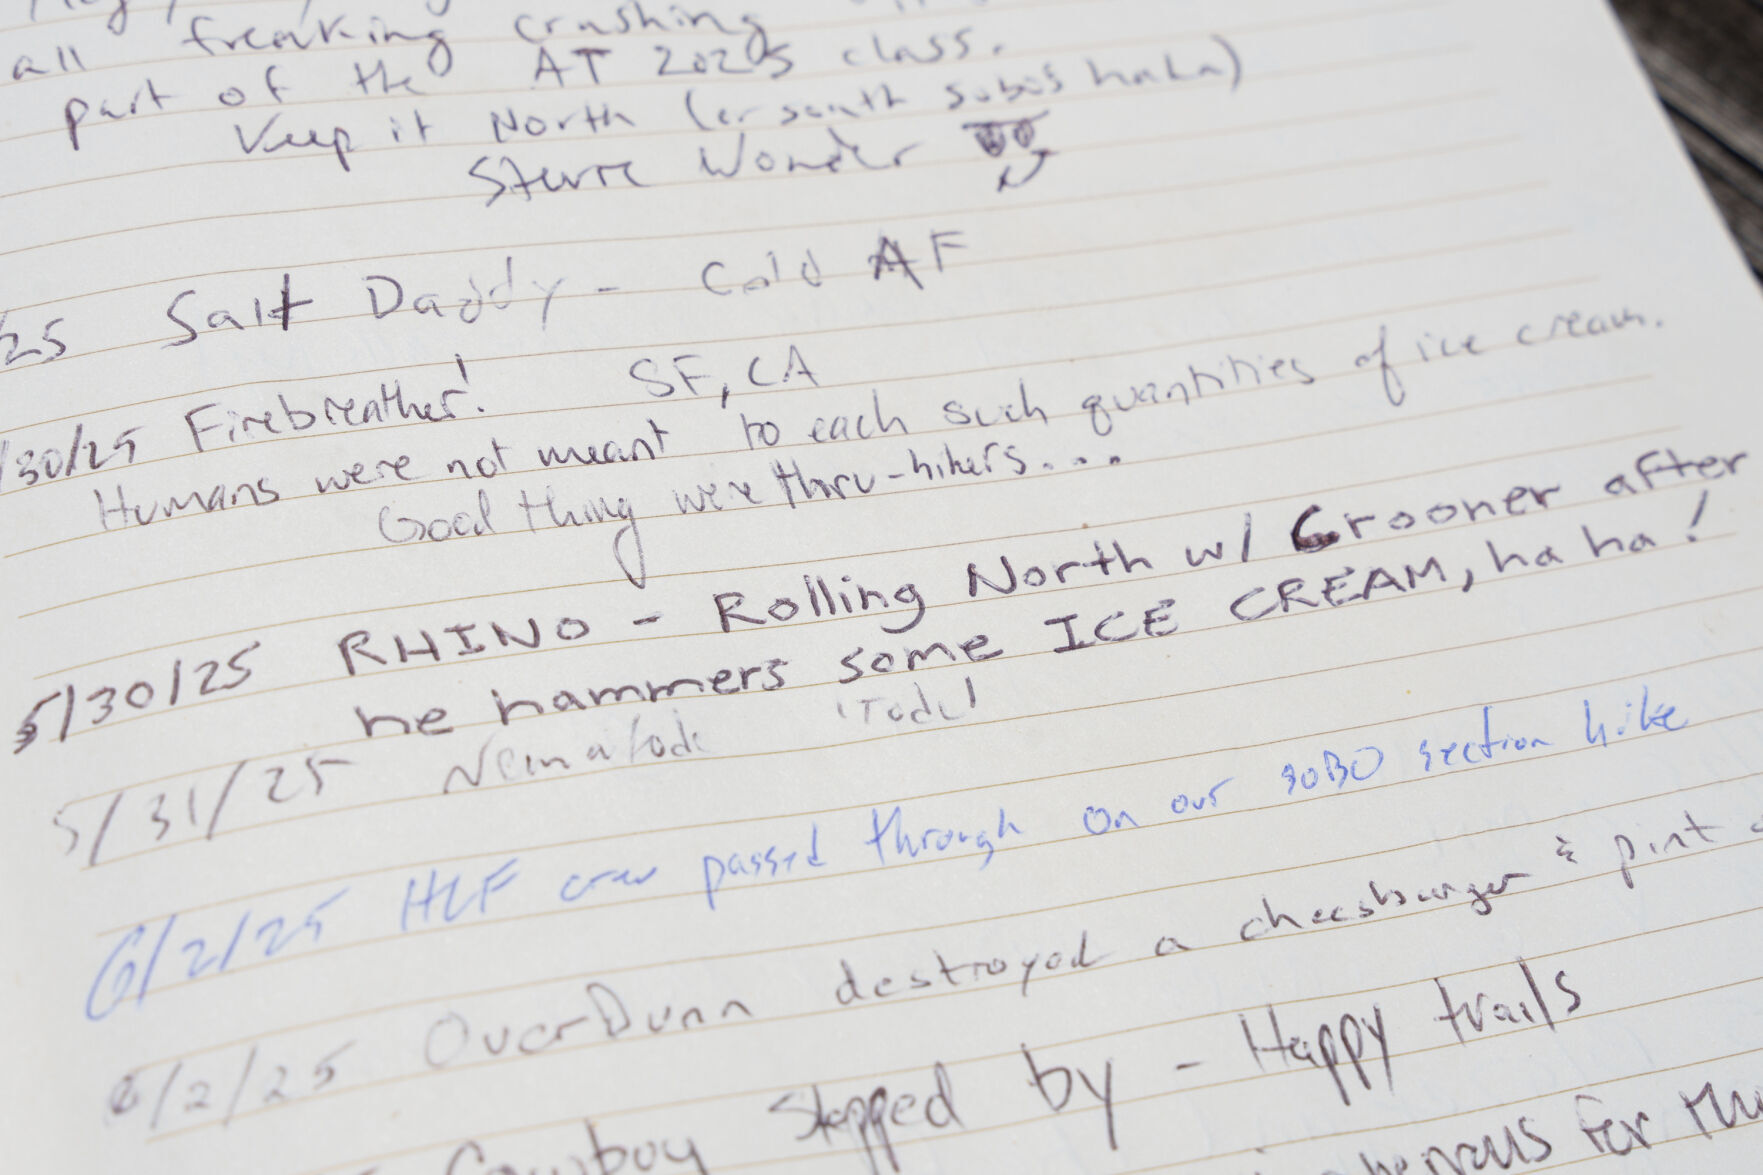 all freaking crushing
part of the AT 2025 class.
Keep it North (or south sobos haha)
Stevie Wonder
25 Salt Daddy - Cold AF
/30/25 Firebreather! SF, CA
Humans were not meant to each such quantities of ice cream.
Good thing we're thru-hikers....
5/30/25 RHINO - Rolling North w/ Crooner after
he hammers some ICE CREAM, ha ha!
5/31/25 Nematode
6/2/25 HLF crew passed through on our SOBO section hike
6/2/25 OverDunn destroyed a cheesburger & pint
Cowboy stopped by - Happy trails
for